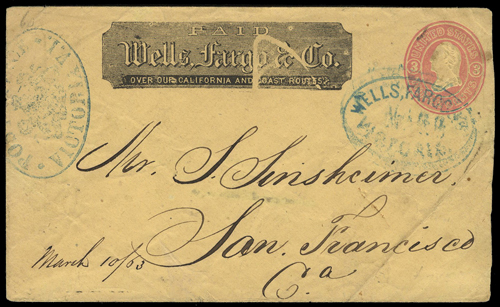 PAID
Wells, Fargo & Co.
OVER OUR CALIFORNIA AND COAST ROUTES
VICTORIA
WELLS, FARGO
VICTORIA
Mr. S. Sinsheimer
San Francisco
Ca
March 10/63